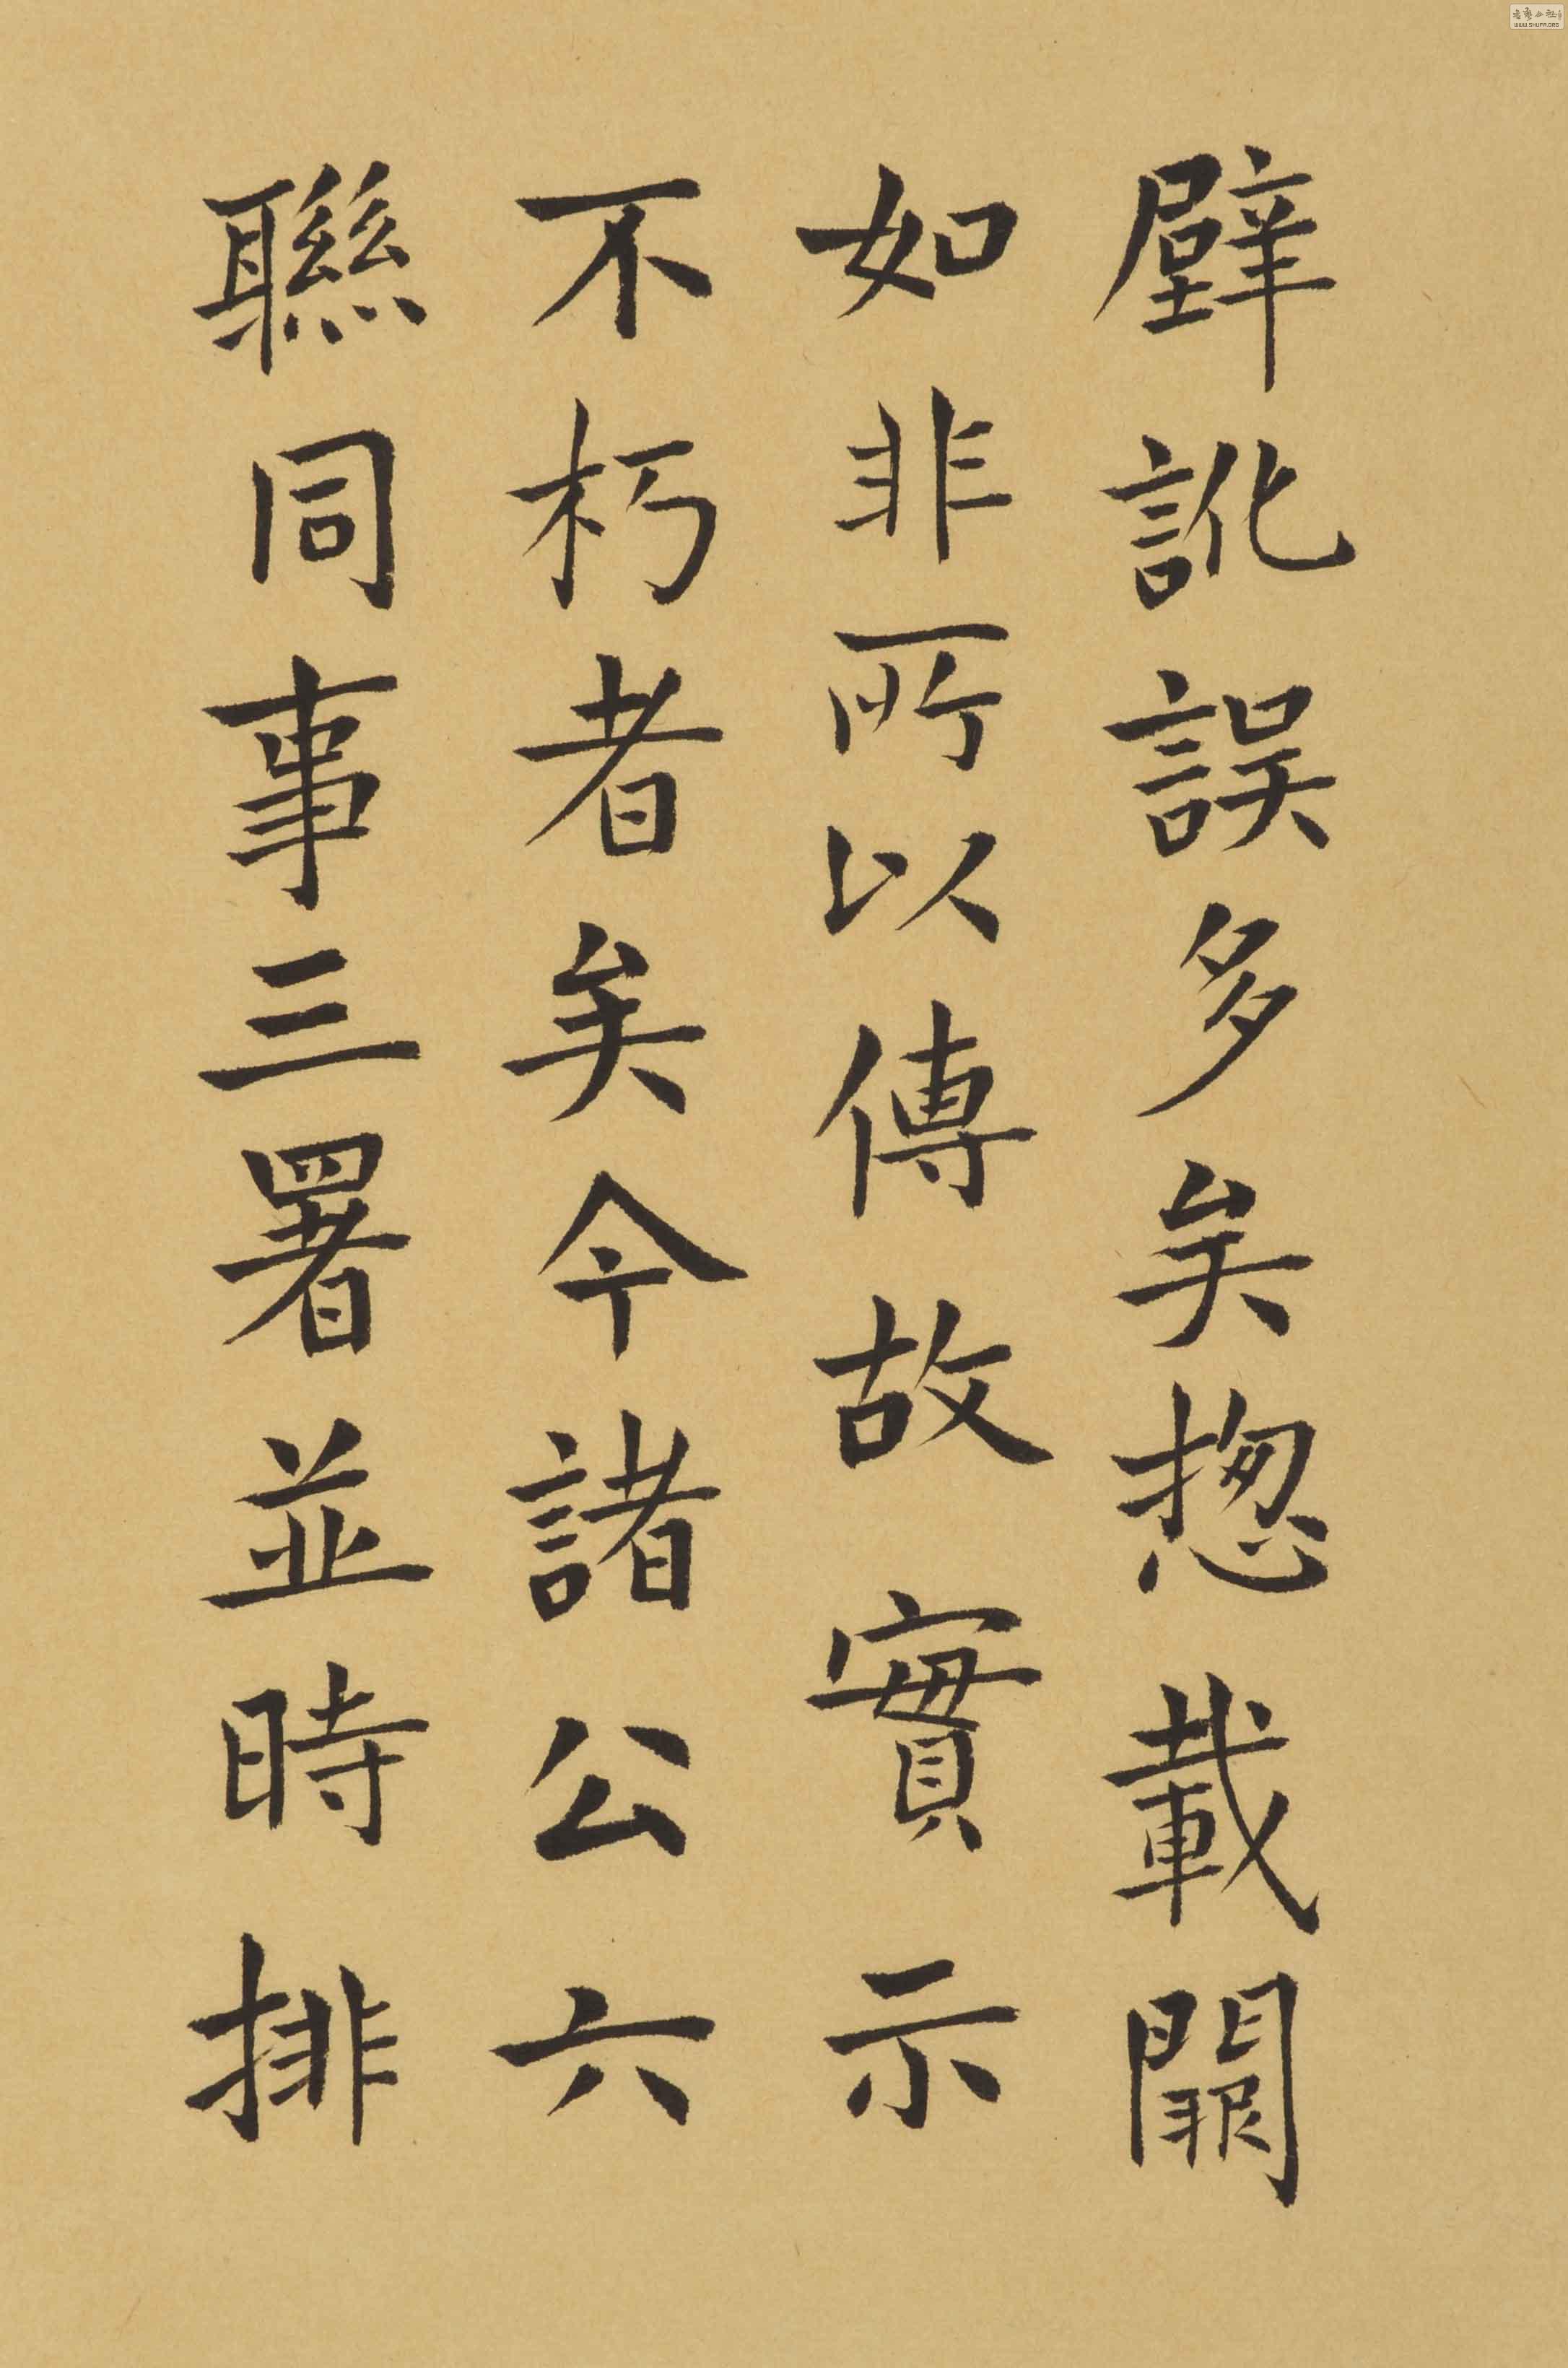 壁訛誤多矣揔載闕
如非所以傳故實示
不朽者矣今諸公六
聯同事三署並時排
WWW.SHUFA.ORG